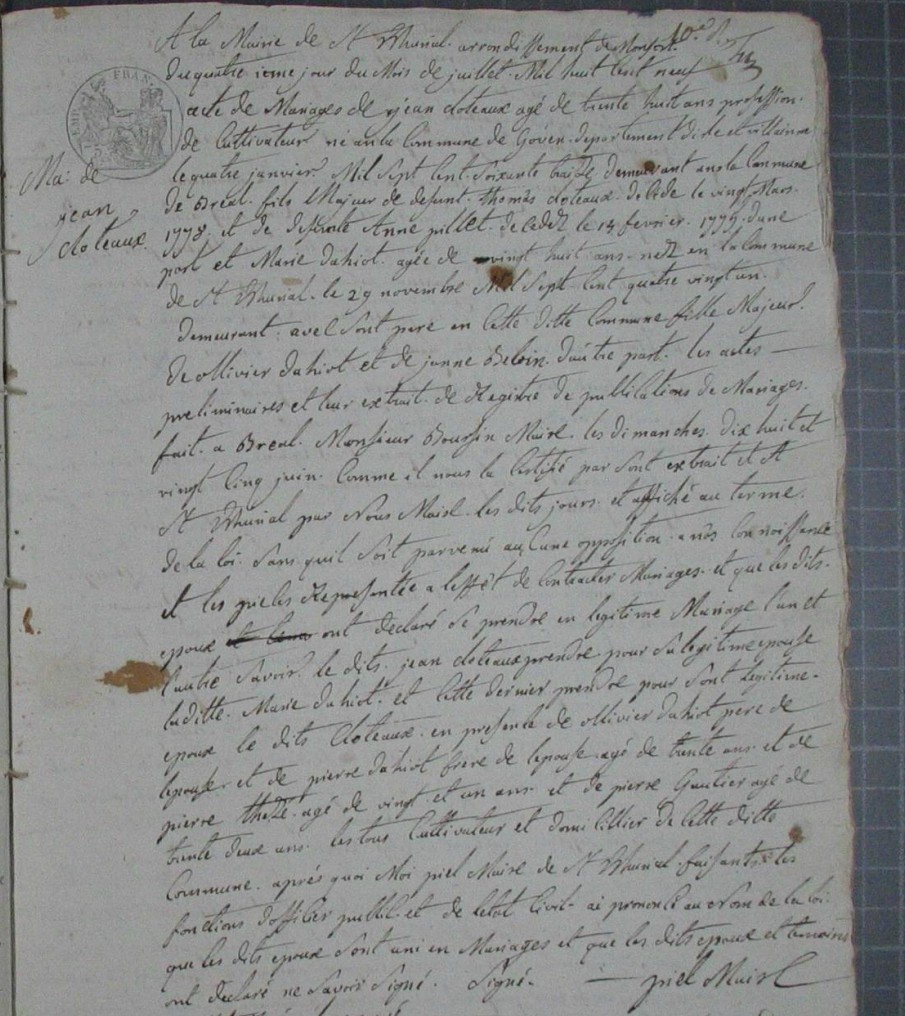 A la Mairie de St Thurial. arrondissement de Monfort.
du quatrieme jour du Mois de juillet. Mil huit Cent neuf
acte de Mariages de jean cloteaux agé de trente huit ans profession.
de Cultivateur né an la Commune de Goven. departement dille et villainne
le quatre janvier. Mil Sept Cent Soixante demeurant ansla Commune
Ma: de
jean
cloteaux.
de Breal. fils Majeur de defunt. thomas cloteaux. decede le vingt Mars.
1778. et de defunte Anne pillet. decedez le 14 fevrier. 1779. dune
part et Marie dahiot. agée de vingt huit ans. nez en la Commune
de St Thurial. le 29 novembre Mil Sept Cent quatre vingt un.
demeurant. avec Sont pere en Cette ditte Commune fille Majeur.
de ollivier dahiot et de janne Belin. dautre part. les actes —
preliminaires et leur extrait. de Registre de publications de Mariages.
fait. a Breal. Monsieur Boursin Maire. les dimanches. dix huit et
vingt Cinq juin. Comme il nous la Certifié par Sont extrait et A
St Thurial par Nous Maire. les dits jours. et affiché au terme.
de la loi. Sans quil Soit parvenu auCune opposition. a nos Connoissance
et les pieces Representée a leffet de Contracter Mariages. et que les dits.
epoux ont declaré Se prendre en legitime Mariage l'un et
l'autre Savoir. le dits. jean cloteaux prendre. pour Sa legitime epouse
laditte. Marie dahiot. et Cette dernier prendre pour Sont legitime.
epoux le dits Cloteaux. en presence de ollivier dahiot pere de
lepouse. et de pierre dahiot frere de lepouse. agé de trente ans. et de
pierre thezé. agé de vingt. et un ans. et de pierre Gautier agé de
trente deux ans. les tous Cultivateur et domicillier de Cette ditte
Commune. aprés quoi Moi piel Maire de St Thurial. faisants les
fonctions d'officier public. et de letat Civil. ai prononcé au Nom de la loi.
que les dits epoux Sont uni en Mariages et que les dits epoux et temoins
ont declaré ne Savoir Signé. Signé. — piel Maire